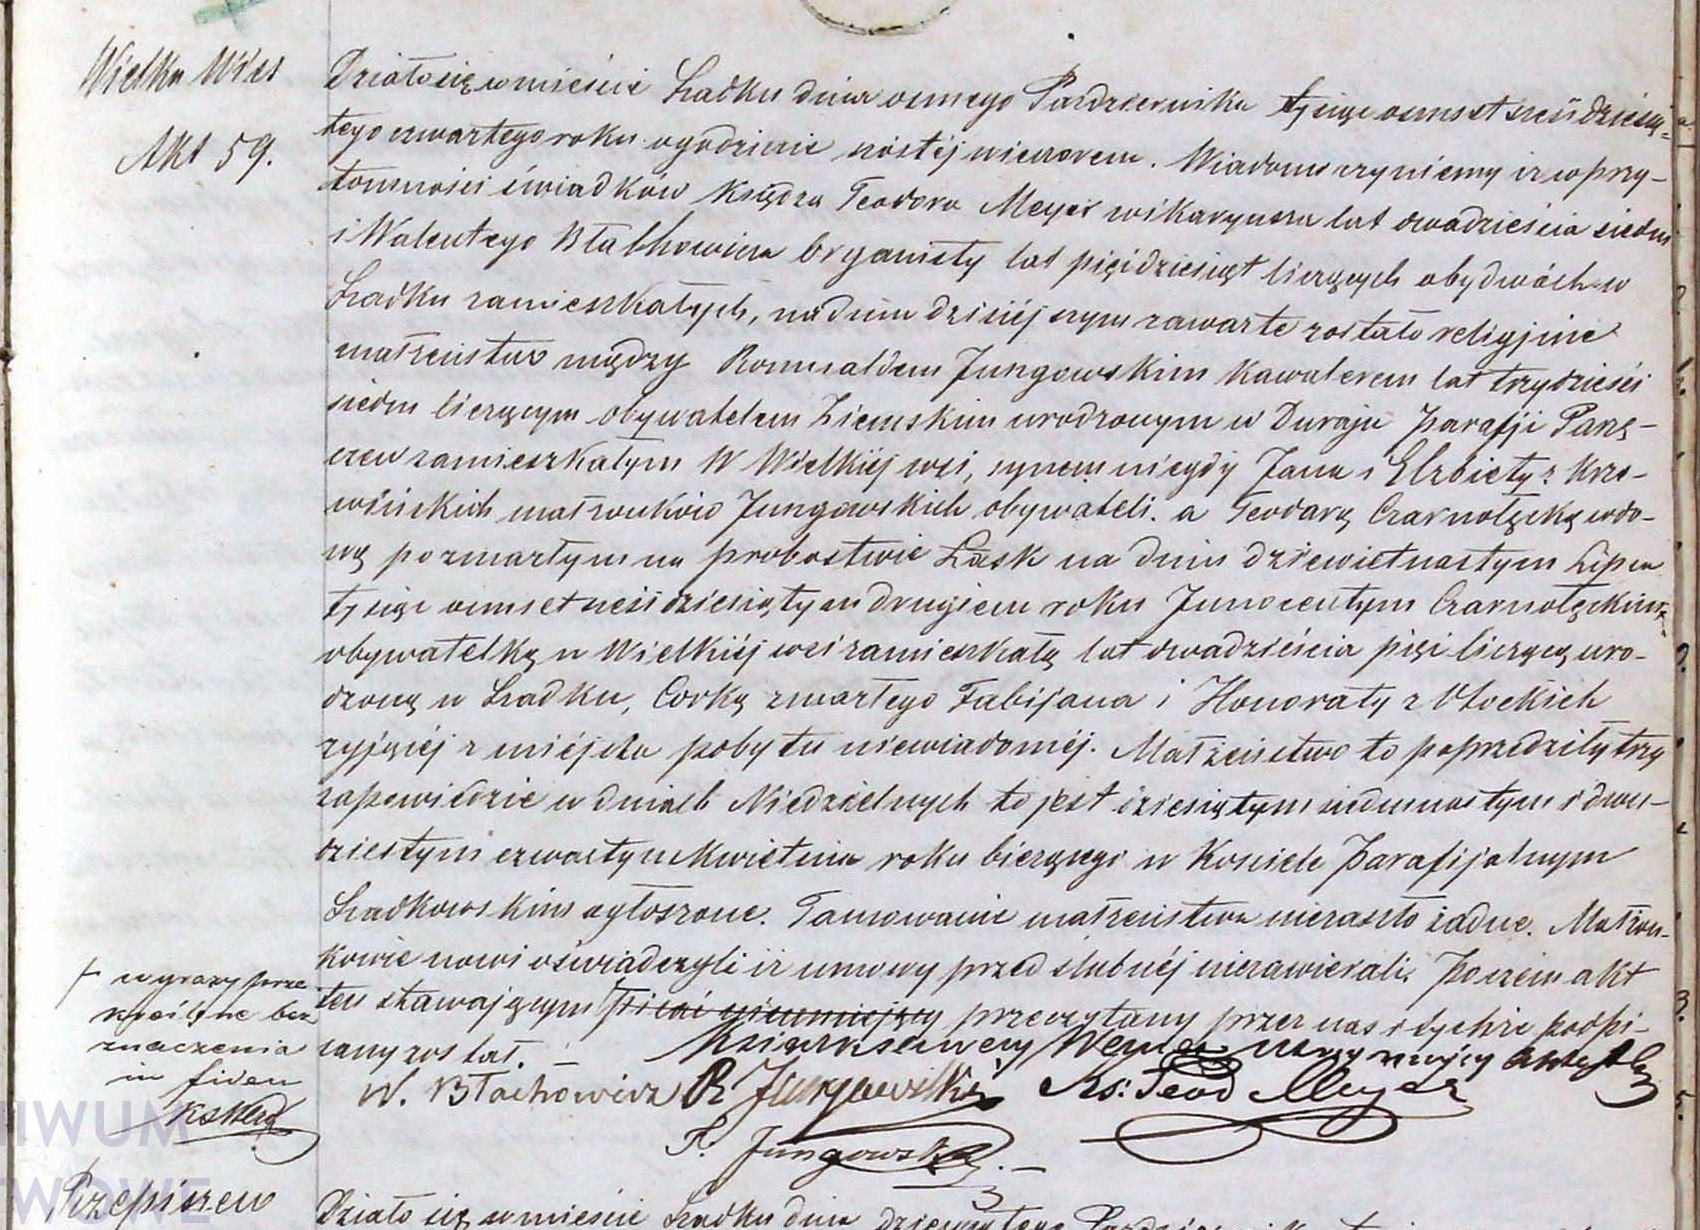 Wielka Wieś
Akt 59.
Działo się w mieście Szadku dnia osmego Pazdziernika tysiąc osmset sześćdziesią-
tego czwartego roku o godzinie szóstéj wieczorem. Wiadomo czyniemy iż w przy-
tomności świadków Księdza Teodora Meyer wikaryusza lat dwadzieścia siedm
i Walentego Błachowicza Organisty lat pięćdziesiąt liczących obydwóch w
Szadku zamieszkałych, na dniu dzisiéjszym zawarte zostało religijne
małżeństwo między Romualdem Jungowskim Kawalerem lat trzydzieści
siedm liczącym obywatelem Ziemskim urodzonym w Duraju Parafji Parzę-
czew zamieszkałym W Wielkiéj wsi, synem niegdy Jana i Elżbiety z Krze-
wsińskich małżonków Jungowskich obywateli. a Teodorą Czarnołęską wdo-
wą po zmarłym na probostwie Łask na dniu dziewiętnastym Lipca
tysiąc osmset sześćdziesiątym drugiem roku Innocentym Czarnołęskim
obywatelką w Wielkiéj wsi zamieszkałą lat dwadzieścia pięć liczącą uro-
dzoną w Szadku, Corką zmarłego Fabijana i Honoraty z Błockich
zyjącéj z miéjsca pobytu niewiadoméj. Małżeństwo to poprzedziły trzy
zapowiedzie w dniach Niedzielnych to jest dziesiątym siedmnastym i dwu-
dziestym czwartym Kwietnia roku bieżącego w Kosciele Parafijalnym
Szadkowskim ogłoszone. Tamowanie małżeństwa nie zaszło żadne. Małżon-
kowie nowi oświadczyli iż umowy przedślubnéj nie zawierali. Poczem akt
ten stawającym pisać nieumiejący przeczytany przez nas i tychże podpi-
sany został. –
W. Błachowicz R Jungowski Ks: Teod Meyer
T. Jungowska
+ wyrazy prze
kreślone bez
znaczenia
in fidem
Przepiszew
Działo się w mieście Szadku dnia